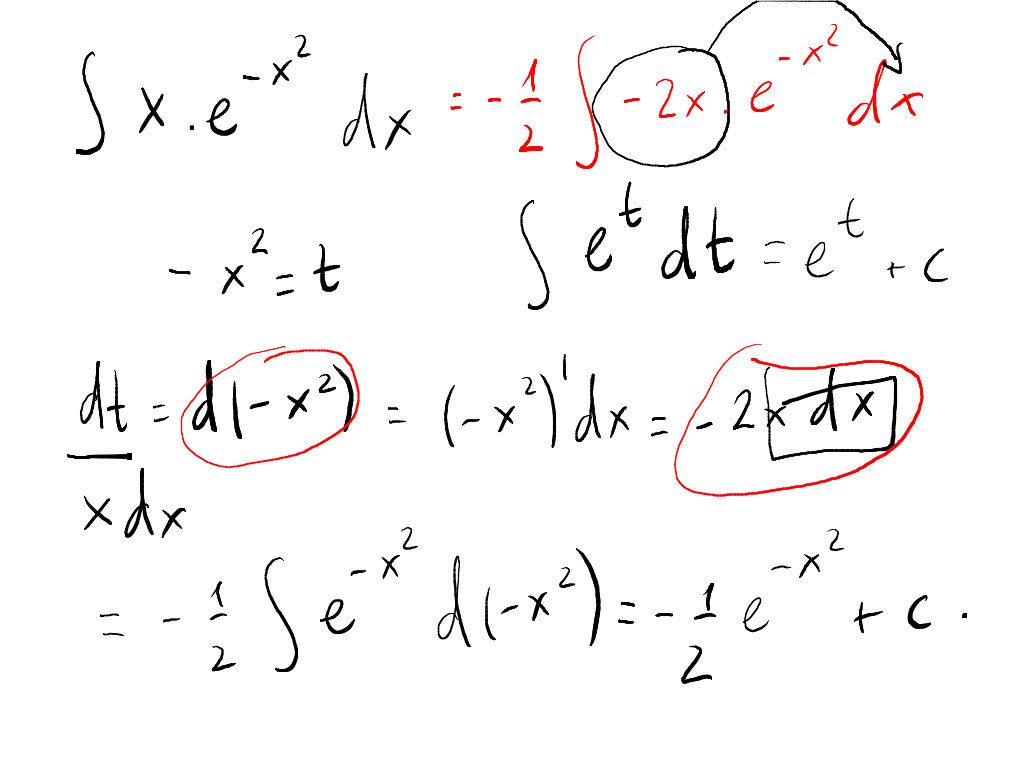 ∫ x · e^{-x^2} dx = -1/2 ∫ -2x · e^{-x^2} dx
-x^2 = t ∫ e^t dt = e^t + c
dt = d(-x^2) = (-x^2)' dx = -2x dx
x dx
= -1/2 ∫ e^{-x^2} d(-x^2) = -1/2 e^{-x^2} + c .